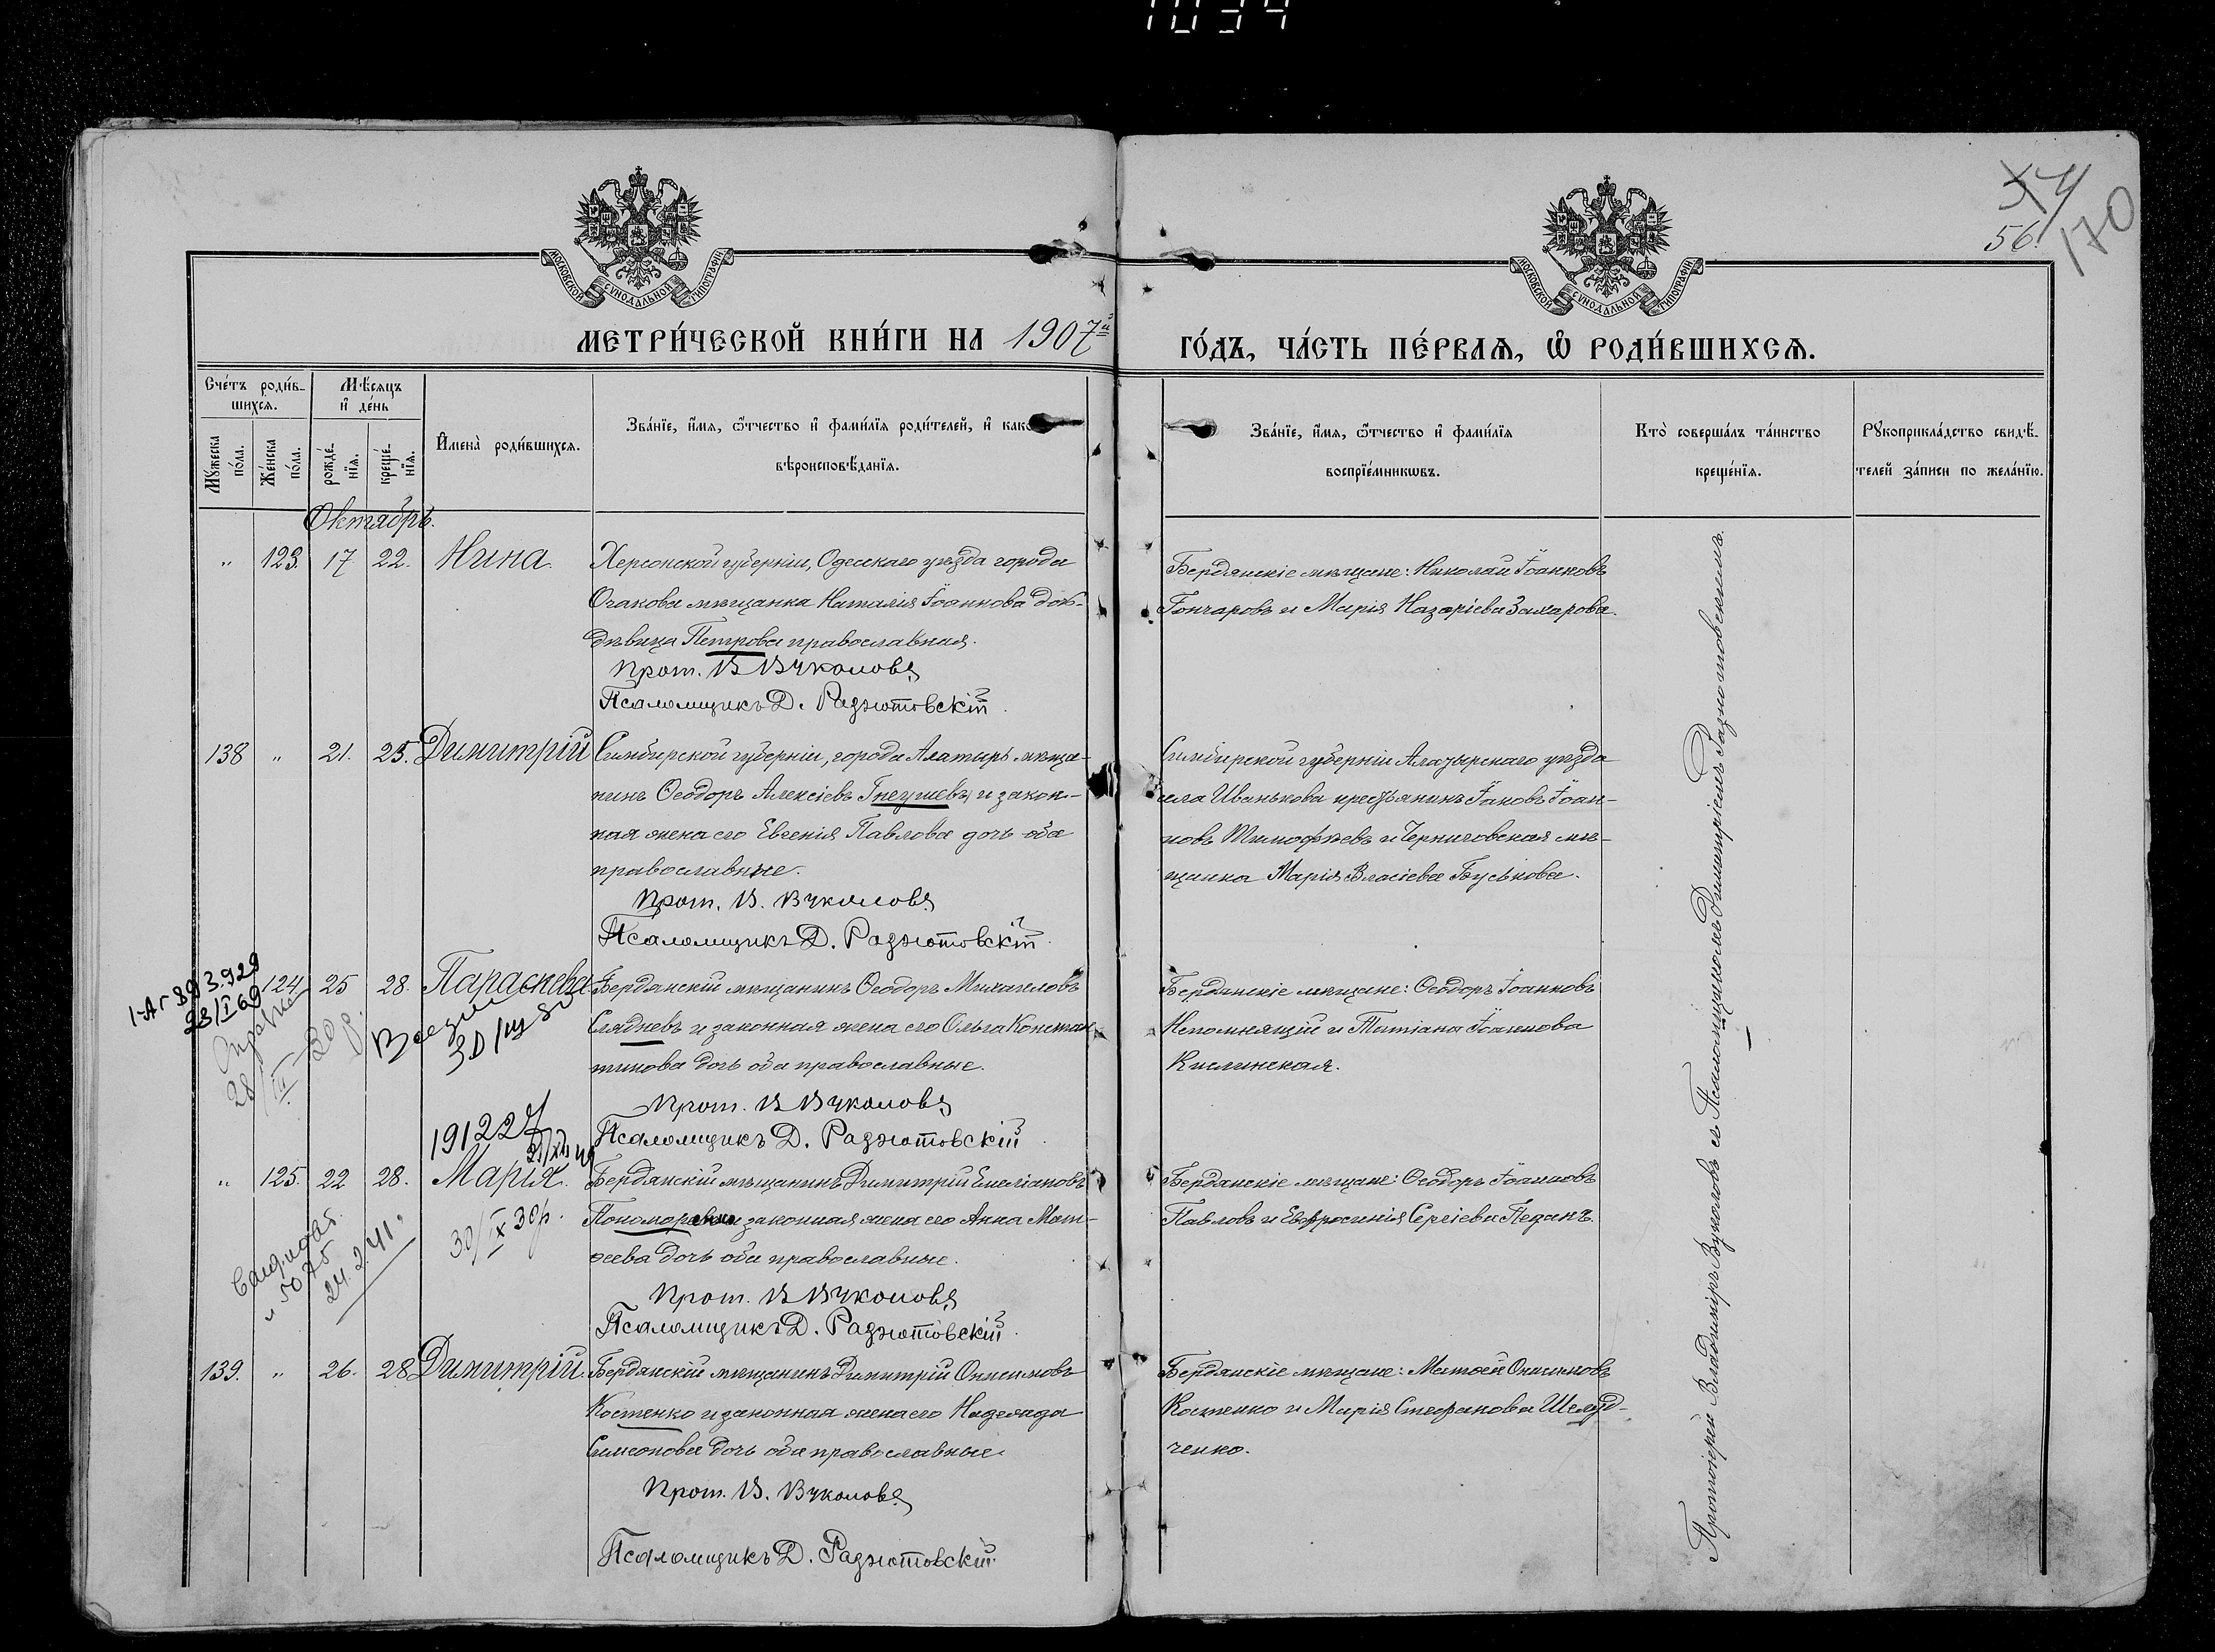 1034
54
56.
170
МОСКОВСКОЙ СУНОДАЛЬНОЙ ТИПОГРАФІИ
МОСКОВСКОЙ СУНОДАЛЬНОЙ ТИПОГРАФІИ
МЕТРИ́ЧЕСКОЙ КНИ́ГИ НА 1907й
ГО́ДЪ, ЧА́СТЬ ПЕ́РВАѦ, Ѡ҆ РОДИ́ВШИХСѦ.
Сче́тъ роди́в-
шихсѧ.
Мѣ́сяцъ
и҆ де́нь
Мꙋ́жеска по́ла.
Же́нска по́ла.
рожде́-
нїѧ.
креще́-
нїѧ.
И҆мена̀ роди́вшихсѧ.
Зва́нїе, и҆́мѧ, ѻ҆́тчество и҆ фами́лїѧ роди́телей, и҆ како
вѣроисповѣ́данїѧ.
Зва́нїе, и҆́мѧ, ѻ҆́тчество и҆ фами́лїѧ
воспрїе́мникѡвъ.
Кто̀ соверша́лъ та́инство
креще́нїѧ.
Рꙋкоприкла́дство свидѣ́-
телей за́писи по жела́нїю.
Октябрь.
" 123. 17 22. Нина.
Херсонской губерніи, Одесскаго уѣзда города
Очакова мѣщанка Наталія Іоаннова доч-
дѣвица Петрова православная.
Прот. В Вуколовъ
Псаломщикъ Д. Радзютовскій.
Бердянскіе мѣщане: Николай Іоанновъ
Гончаровъ и Марія Назаріева Захарова.
138 " 21. 25. Димитрій
Симбирской губерніи, города Алатырь мѣща-
нинъ Ѳеодоръ Алексіевъ Гнеушевъ и закон-
ная жена его Евгенія Павлова дочь оба
православные.
Прот. В. Вуколовъ
Псаломщикъ Д. Радзютовскій.
Симбирской губерніи Алатырскаго уѣзда
села Иванькова крестьянинъ Іаковъ Іоан-
новъ Тимофѣевъ и Черниговская мѣ-
щанка Марія Власіева Буськова.
124. 25 28. Параскева
Бердянскій мѣщанинъ Ѳеодоръ Михаиловъ
Сладневъ и законная жена его Ольга Констан
тинова дочь оба православные.
Прот. В Вуколовъ
Псаломщикъ Д. Радзютовскій.
Бердянскіе мѣщане: Ѳеодоръ Іоанновъ
Непомнящій и Татіана Іоаннова
Кислинская.
28/I 69
" 125. 22 28. Марія.
30/IX 30р.
24.2.41.
Бердянскій мѣщанинъ Димитрій Емеліановъ
законная жена его Анна Мат-
ѳеева дочь оба православные.
Прот. В Вуколовъ
Псаломщикъ Д. Радзютовскій.
Бердянскіе мѣщане: Ѳеодоръ Іоанновъ
Павловъ и Евфросинія Сергіева Педанъ.
139. " 26. 28 Димитрій.
Бердянскій мѣщанинъ Димитрій Онисимовъ
Костенко и законная жена его Надежда
Симеонова дочь оба православные.
Прот. В. Вуколовъ
Псаломщикъ Д. Радзютовскій.
Бердянскіе мѣщане: Матѳей Онисимовъ
Костенко и Марія Стефанова Шелуд-
ченко.
Протоіерей Владиміръ Вуколовъ и Псаломщикомъ Димитріемъ Радзютовскимъ.